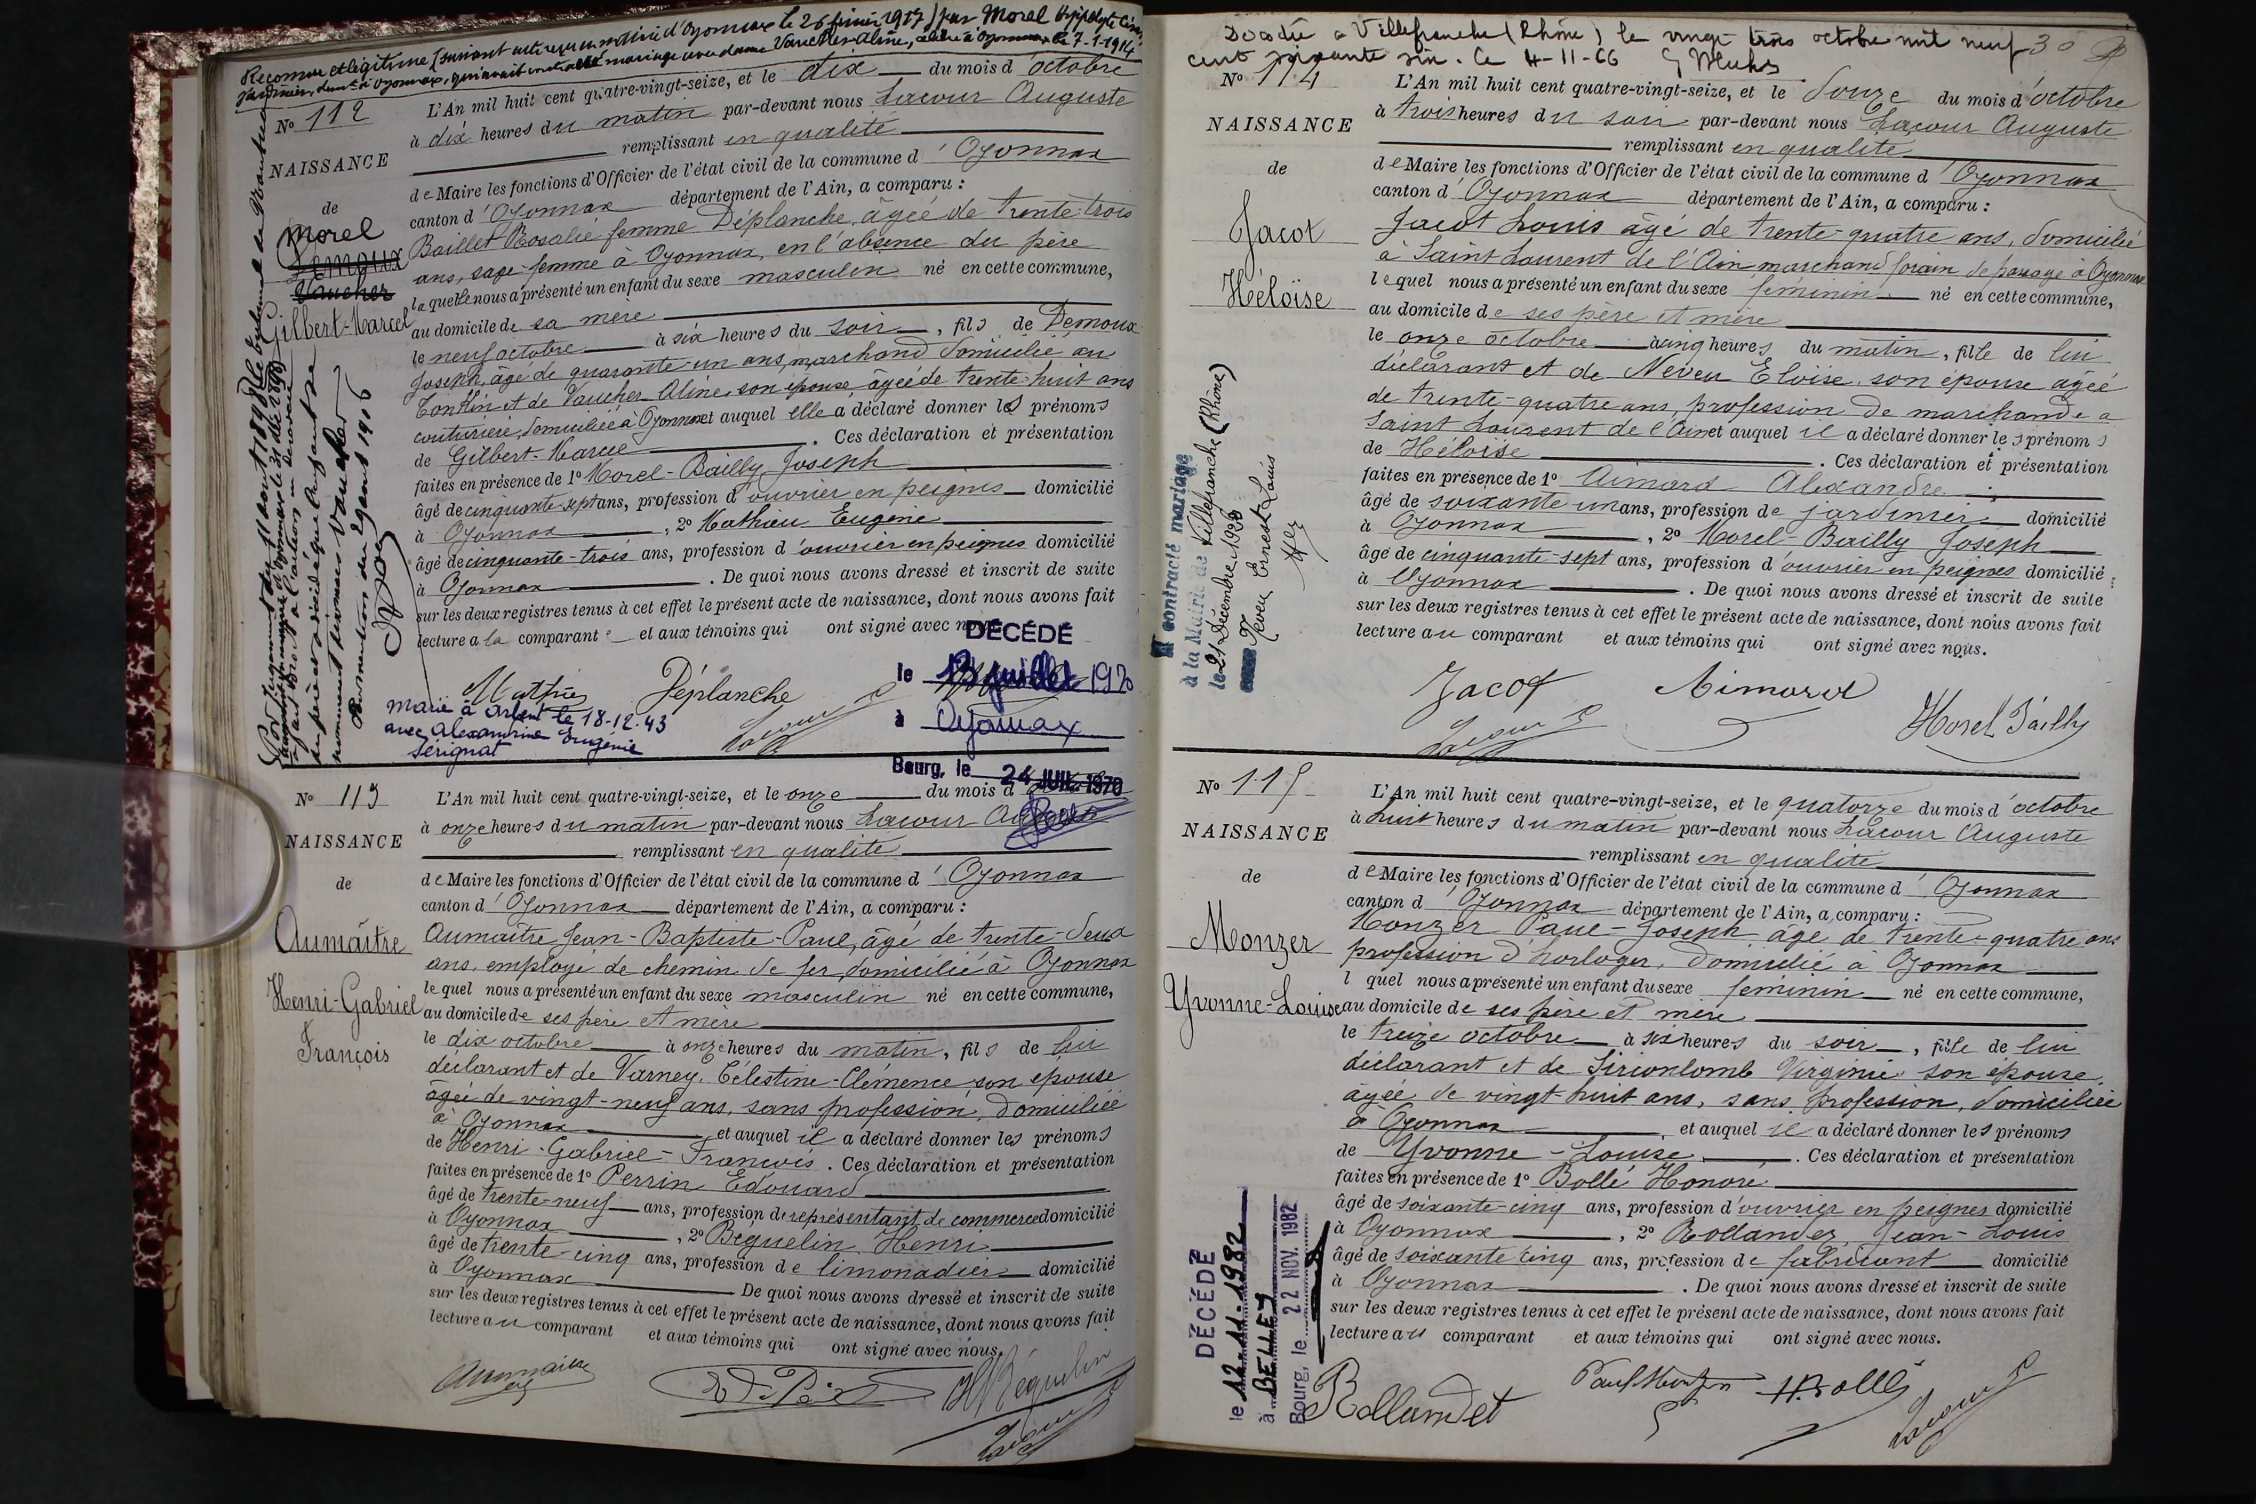 Reconnu et légitimé (suivant acte reçu en mairie d'Oyonnax le 26 février 1917) par Morel Hyppolyte
jardinier, dem.t à Oyonnax, qui avait contracté mariage avec dame Vaucher Aline, célébré à Oyonnax le 7-1-1914
N° 112
NAISSANCE
de
Morel
Demoux
Vaucher
Gilbert-Marcel
L'An mil huit cent quatre-vingt-seize, et le dix du mois d'octobre
à dix heures du matin par-devant nous Lacour Auguste
remplissant en qualité
de Maire les fonctions d'Officier de l'état civil de la commune d'Oyonnax
canton d'Oyonnax département de l'Ain, a comparu :
Baillet Rosalie femme Déplanche, âgée de trente-trois
ans, sage-femme à Oyonnax, en l'absence du père
laquelle nous a présenté un enfant du sexe masculin né en cette commune,
au domicile de sa mère
le neuf octobre à six heures du soir, fils de Demoux
Joseph, âgé de quarante-un ans, marchand domicilié au
Tonkin et de Vaucher Aline, son épouse âgée de trente-huit ans
couturière, domiciliée à Oyonnax et auquel elle a déclaré donner les prénoms
de Gilbert-Marcel. Ces déclaration et présentation
faites en présence de 1° Morel-Bailly Joseph
âgé de cinquante-sept ans, profession d'ouvrier en peignes domicilié
à Oyonnax, 2° Mathieu Eugène
âgé de cinquante-trois ans, profession d'ouvrier en peignes domicilié
à Oyonnax. De quoi nous avons dressé et inscrit de suite
sur les deux registres tenus à cet effet le présent acte de naissance, dont nous avons fait
lecture a la comparante et aux témoins qui ont signé avec nous.
Par jugement du 11 août 1898 le tribunal de
en père et décidé que l'enfant se
nommerait désormais Vaucher
29 août 1906
Mathieu Déplanche
Lacour
Marié à Arbent le 18-12-43
avec Alexandrine Eugénie
Sérignat
DÉCÉDÉ
le 13 juillet 1970
à Oyonnax
Bourg, le 24 JUIL. 1970
N° 113
NAISSANCE
de
Aumaître
Henri-Gabriel
François
L'An mil huit cent quatre-vingt-seize, et le onze du mois d'
à onze heures du matin par-devant nous Lacour Auguste
remplissant en qualité
de Maire les fonctions d'Officier de l'état civil de la commune d'Oyonnax
canton d'Oyonnax département de l'Ain, a comparu :
Aumaître Jean-Baptiste-Paul, âgé de trente-deux
ans, employé de chemin de fer, domicilié à Oyonnax
lequel nous a présenté un enfant du sexe masculin né en cette commune,
au domicile de ses père et mère
le dix octobre à onze heures du matin, fils de lui
déclarant et de Varney, Célestine-Clémence son épouse
âgée de vingt-neuf ans, sans profession, domiciliée
à Oyonnax et auquel il a déclaré donner les prénoms
de Henri-Gabriel-François. Ces déclaration et présentation
faites en présence de 1° Perrin Edouard
âgé de trente-neuf ans, profession de représentant de commerce domicilié
à Oyonnax, 2° Béguelin Henri
âgé de trente-cinq ans, profession de limonadier domicilié
à Oyonnax De quoi nous avons dressé et inscrit de suite
sur les deux registres tenus à cet effet le présent acte de naissance, dont nous avons fait
lecture au comparant et aux témoins qui ont signé avec nous.
Aumaitre
H Béguelin
Lacour
Décédée à Villefranche (Rhône) le vingt trois octobre mil neuf 30
cent soixante six. Le 4-11-66
N° 114
NAISSANCE
de
Jacot
Héloïse
L'An mil huit cent quatre-vingt-seize, et le douze du mois d'octobre
à trois heures du soir par-devant nous Lacour Auguste
remplissant en qualité
de Maire les fonctions d'Officier de l'état civil de la commune d'Oyonnax
canton d'Oyonnax département de l'Ain, a comparu :
Jacot Louis âgé de trente-quatre ans, domicilié
à Saint Laurent de l'Ain marchand forain de passage à Oyonnax
lequel nous a présenté un enfant du sexe féminin né en cette commune,
au domicile de ses père et mère
le onze octobre à cinq heures du matin, fille de lui
déclarant et de Neveu Eloïse, son épouse âgée
de trente-quatre ans, profession de marchande a
Saint Laurent de l'Ain et auquel il a déclaré donner les prénoms
de Héloïse. Ces déclaration et présentation
faites en présence de 1° Aimard Alexandre
âgé de soixante un ans, profession de jardinier domicilié
à Oyonnax, 2° Morel-Bailly Joseph
âgé de cinquante-sept ans, profession d'ouvrier en peignes domicilié
à Oyonnax. De quoi nous avons dressé et inscrit de suite
sur les deux registres tenus à cet effet le présent acte de naissance, dont nous avons fait
lecture au comparant et aux témoins qui ont signé avec nous.
A contracté mariage
à la Mairie de Villefranche (Rhône)
le 21 Décembre 1920
Neveu Ernest Louis
Jacot Aimard
Lacour Morel Bailly
N° 115
NAISSANCE
de
Monzer
Yvonne-Louise
L'An mil huit cent quatre-vingt-seize, et le quatorze du mois d'octobre
à huit heures du matin par-devant nous Lacour Auguste
remplissant en qualité
de Maire les fonctions d'Officier de l'état civil de la commune d'Oyonnax
canton d'Oyonnax département de l'Ain, a comparu :
Monzer Paul-Joseph âgé de trente-quatre ans
profession d'horloger, domicilié à Oyonnax
lquel nous a présenté un enfant du sexe féminin né en cette commune,
au domicile de ses père et mère
le treize octobre à six heures du soir, fille de lui
déclarant et de Virginie son épouse,
âgée de vingt-huit ans, sans profession, domiciliée
à Oyonnax, et auquel il a déclaré donner les prénoms
de Yvonne-Louise. Ces déclaration et présentation
faites en présence de 1° Bollé Honoré
âgé de soixante-cinq ans, profession d'ouvrier en peignes domicilié
à Oyonnax, 2° Rollandez, Jean-Louis
âgé de soixante cinq ans, profession de fabricant domicilié
à Oyonnax. De quoi nous avons dressé et inscrit de suite
sur les deux registres tenus à cet effet le présent acte de naissance, dont nous avons fait
lecture au comparant et aux témoins qui ont signé avec nous.
DÉCÉDÉ
le 12-11-1982
à BELLEY
Bourg, le 22 NOV. 1982
Rollandet Paul Monzer H. Bollé
Lacour